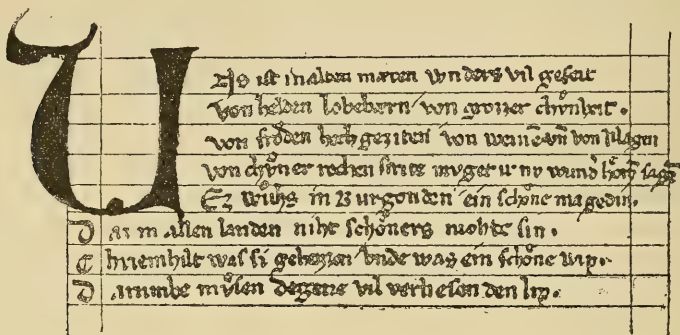 UNs ist in alten mæren wnders vil geseit
von helden lobebærn von grozzer chůnheit.
von frŏden hochgeziten von weinē vn̄ von klagen
von chůner rechen strite mvget ir nv wund' hŏrn sagē
Ez wůhs in Burgonden ein schŏne magedin.
Daz in allen landen niht schŏners mohte sin.
Chriemhilt was si geheizzen vnde was ein schŏne wip.
Darumbe můsen degene vil verliesen den lip.